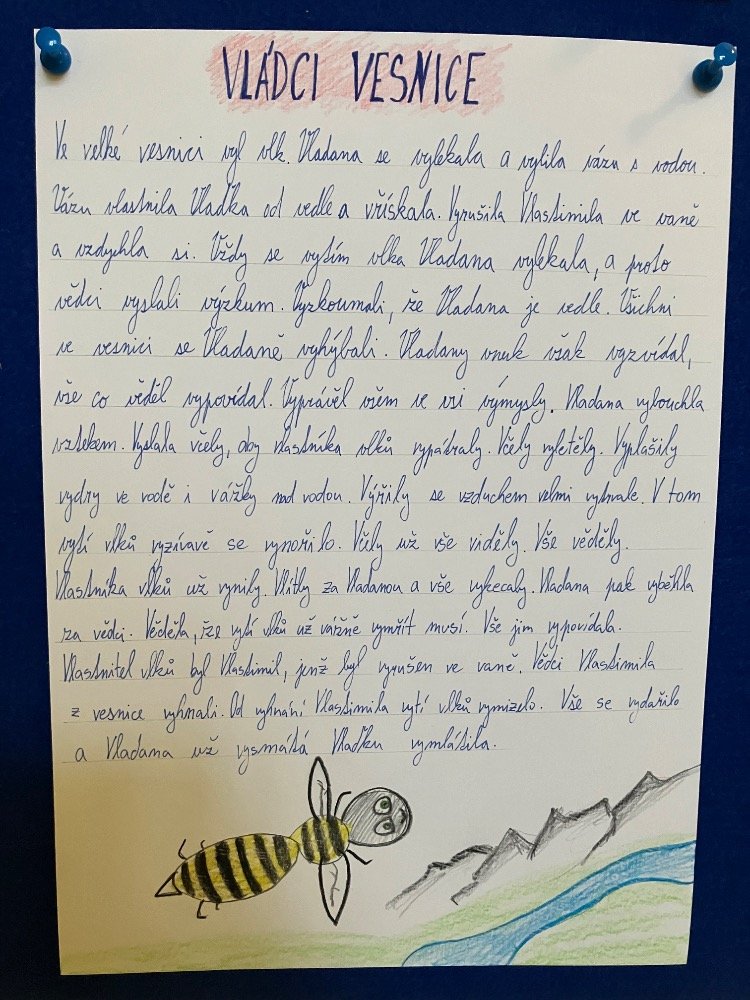 VLÁDCI VESNICE
Ve velké vesnici vyl vlk. Vladana se vylekala a vylila vázu s vodou.
Vázu vlastnila Vlaďka od vedle a vřískala. Vyrušila Vlastimila ve vaně
a vzdychla si. Vždy se vytím vlka Vladana vylekala, a proto
vědci vyslali výzkum. Vyzkoumali, že Vladana je vedle. Všichni
ve vesnici se Vladaně vyhýbali. Vladany vnuk však vyzvídal,
vše co věděl vypovídal. Vyprávěl všem ve vsi výmysly. Vladana vybouchla
vztekem. Vyslala včely, aby vlastníka vlků vypátraly. Včely vyletěly. Vyplašily
vydry ve vodě i vážky nad vodou. Výřily se vzduchem velmi vytrvale. V tom
vytí vlků vyzívavě se vynořilo. Včely už vše viděly. Vše věděly.
Vlastníka vlků už vynily. Vlítly za Vladanou a vše vykecaly. Vladana pak vyběhla
za vědci. Věděla, že vytí vlků už vážně vymřít musí. Vše jim vypovídala.
Vlastnitel vlků byl Vlastimil, jenž byl vyrušen ve vaně. Vědci Vlastimila
z vesnice vyhnali. Od vyhnání Vlastimila vytí vlků vymizelo. Vše se vydařilo
a Vladana už vysmátá Vlaďku vymlátila.